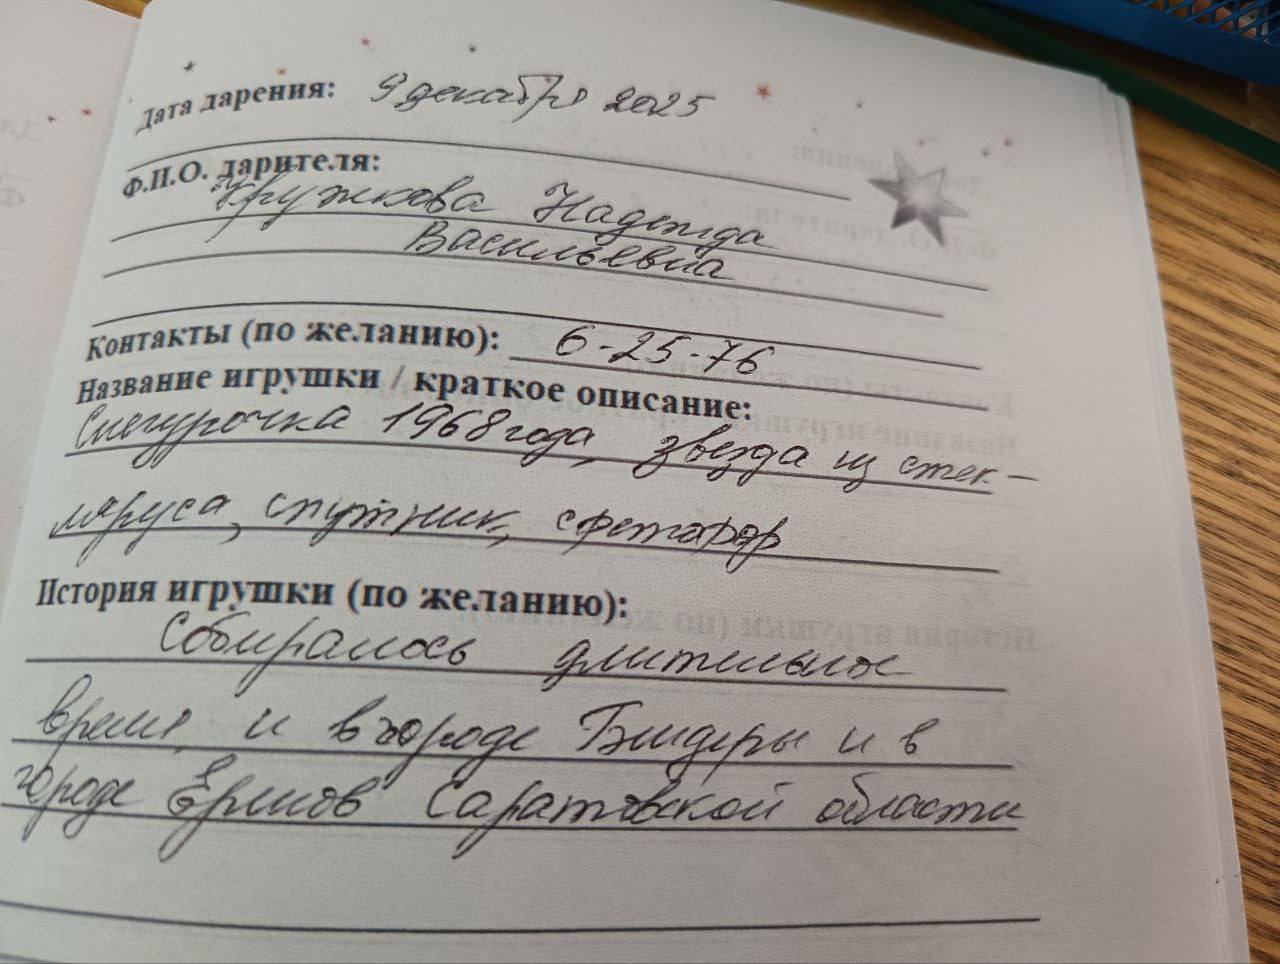 Дата дарения: 9 декабря 2025
Ф.И.О. дарителя:
Кружкова Надежда
Васильевна
Контакты (по желанию): 6-25-76
Название игрушки / краткое описание:
Снегурочка 1968 года, звезда из стек-
ляруса, спутник, светофор
История игрушки (по желанию):
Собиралось длительное
время и в городе Бендеры и в
городе Ершов Саратовской области